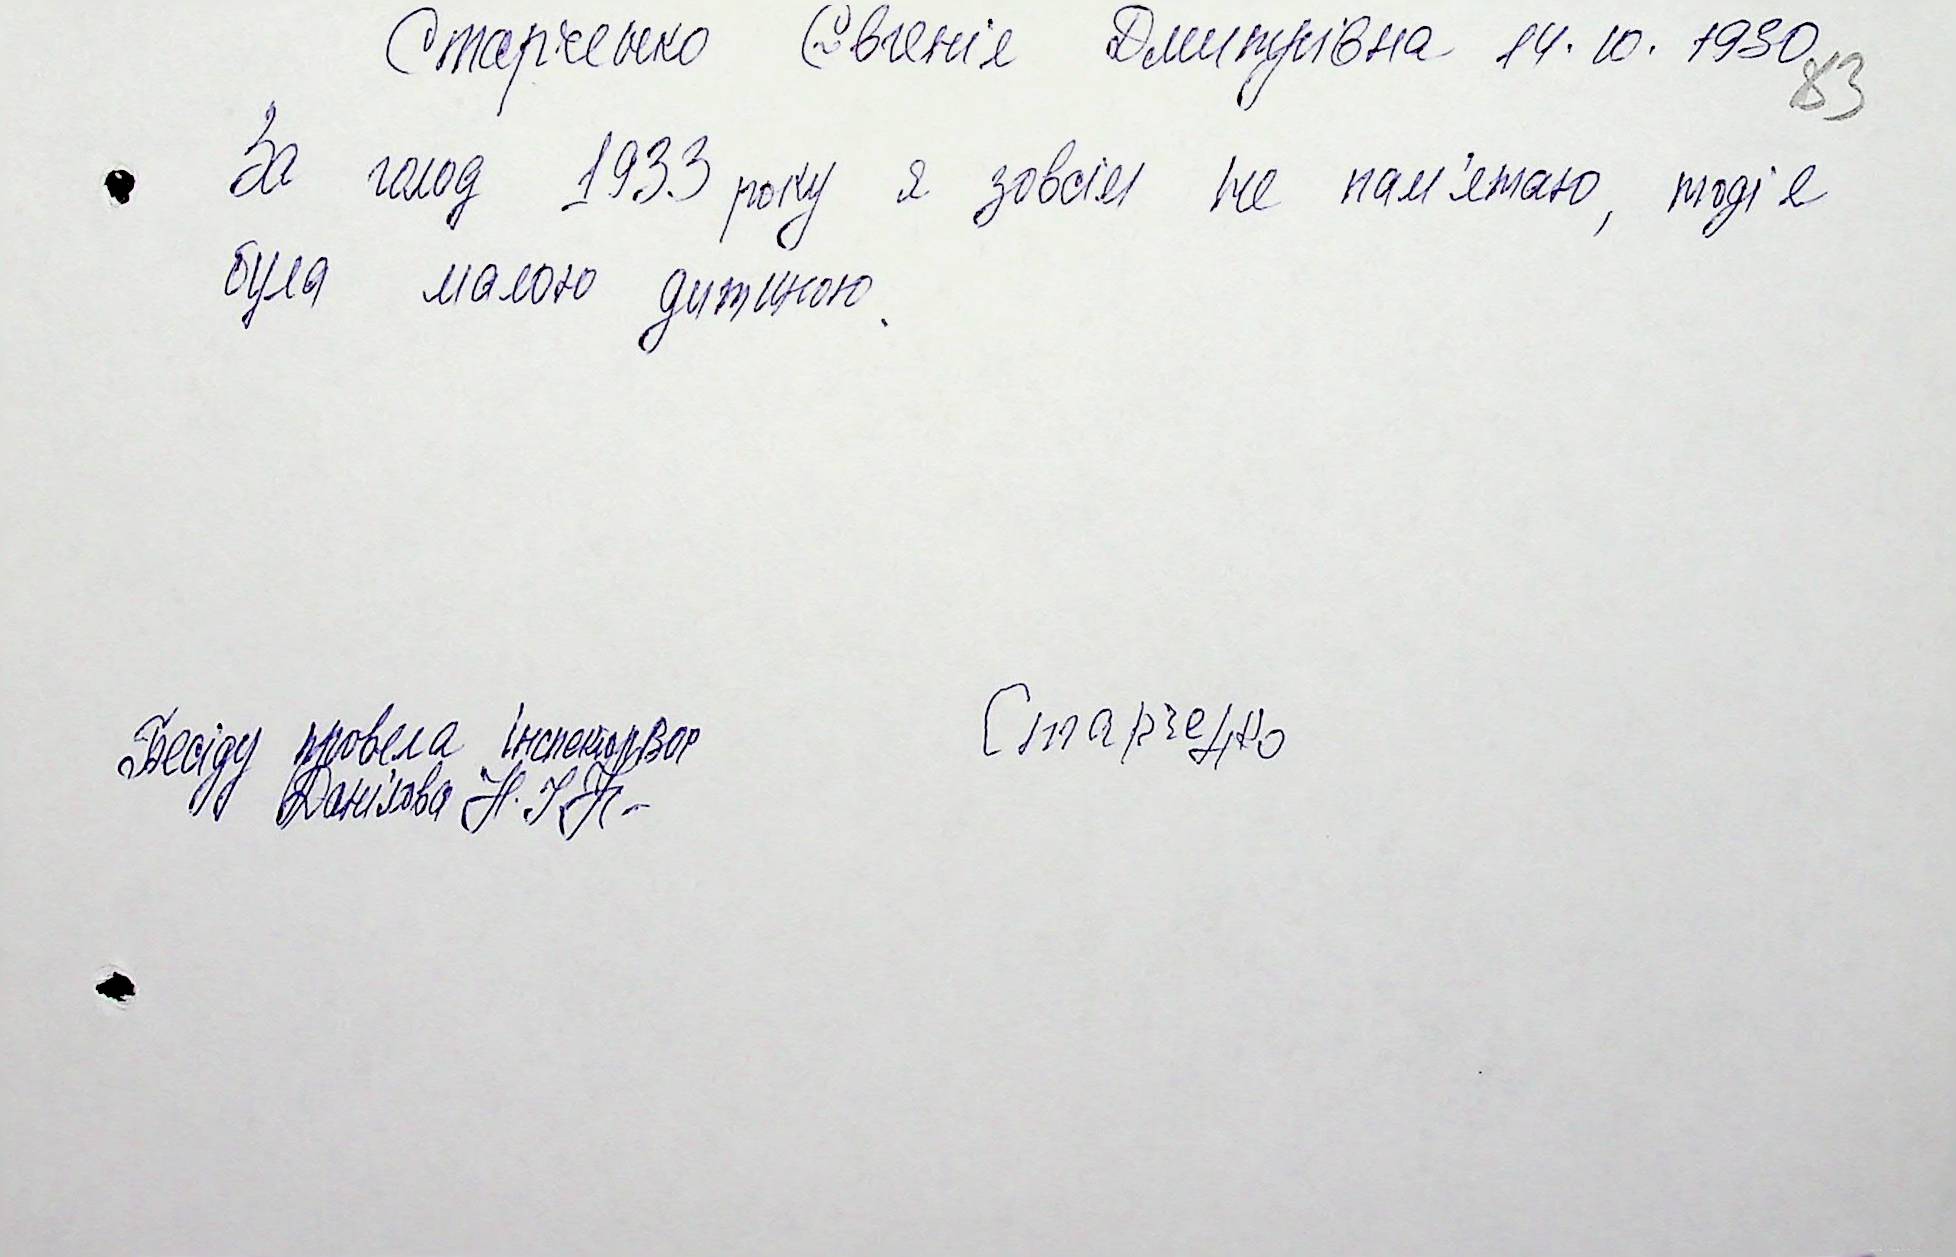 Старченко Євгенія Дмитрівна 14.10.1930
83
За голод 1933 року я зовсім не пам'ятаю, тоді я
була малою дитиною.
Бесіду провела інспектор ВОР
Старченко
Данілова Н.І.